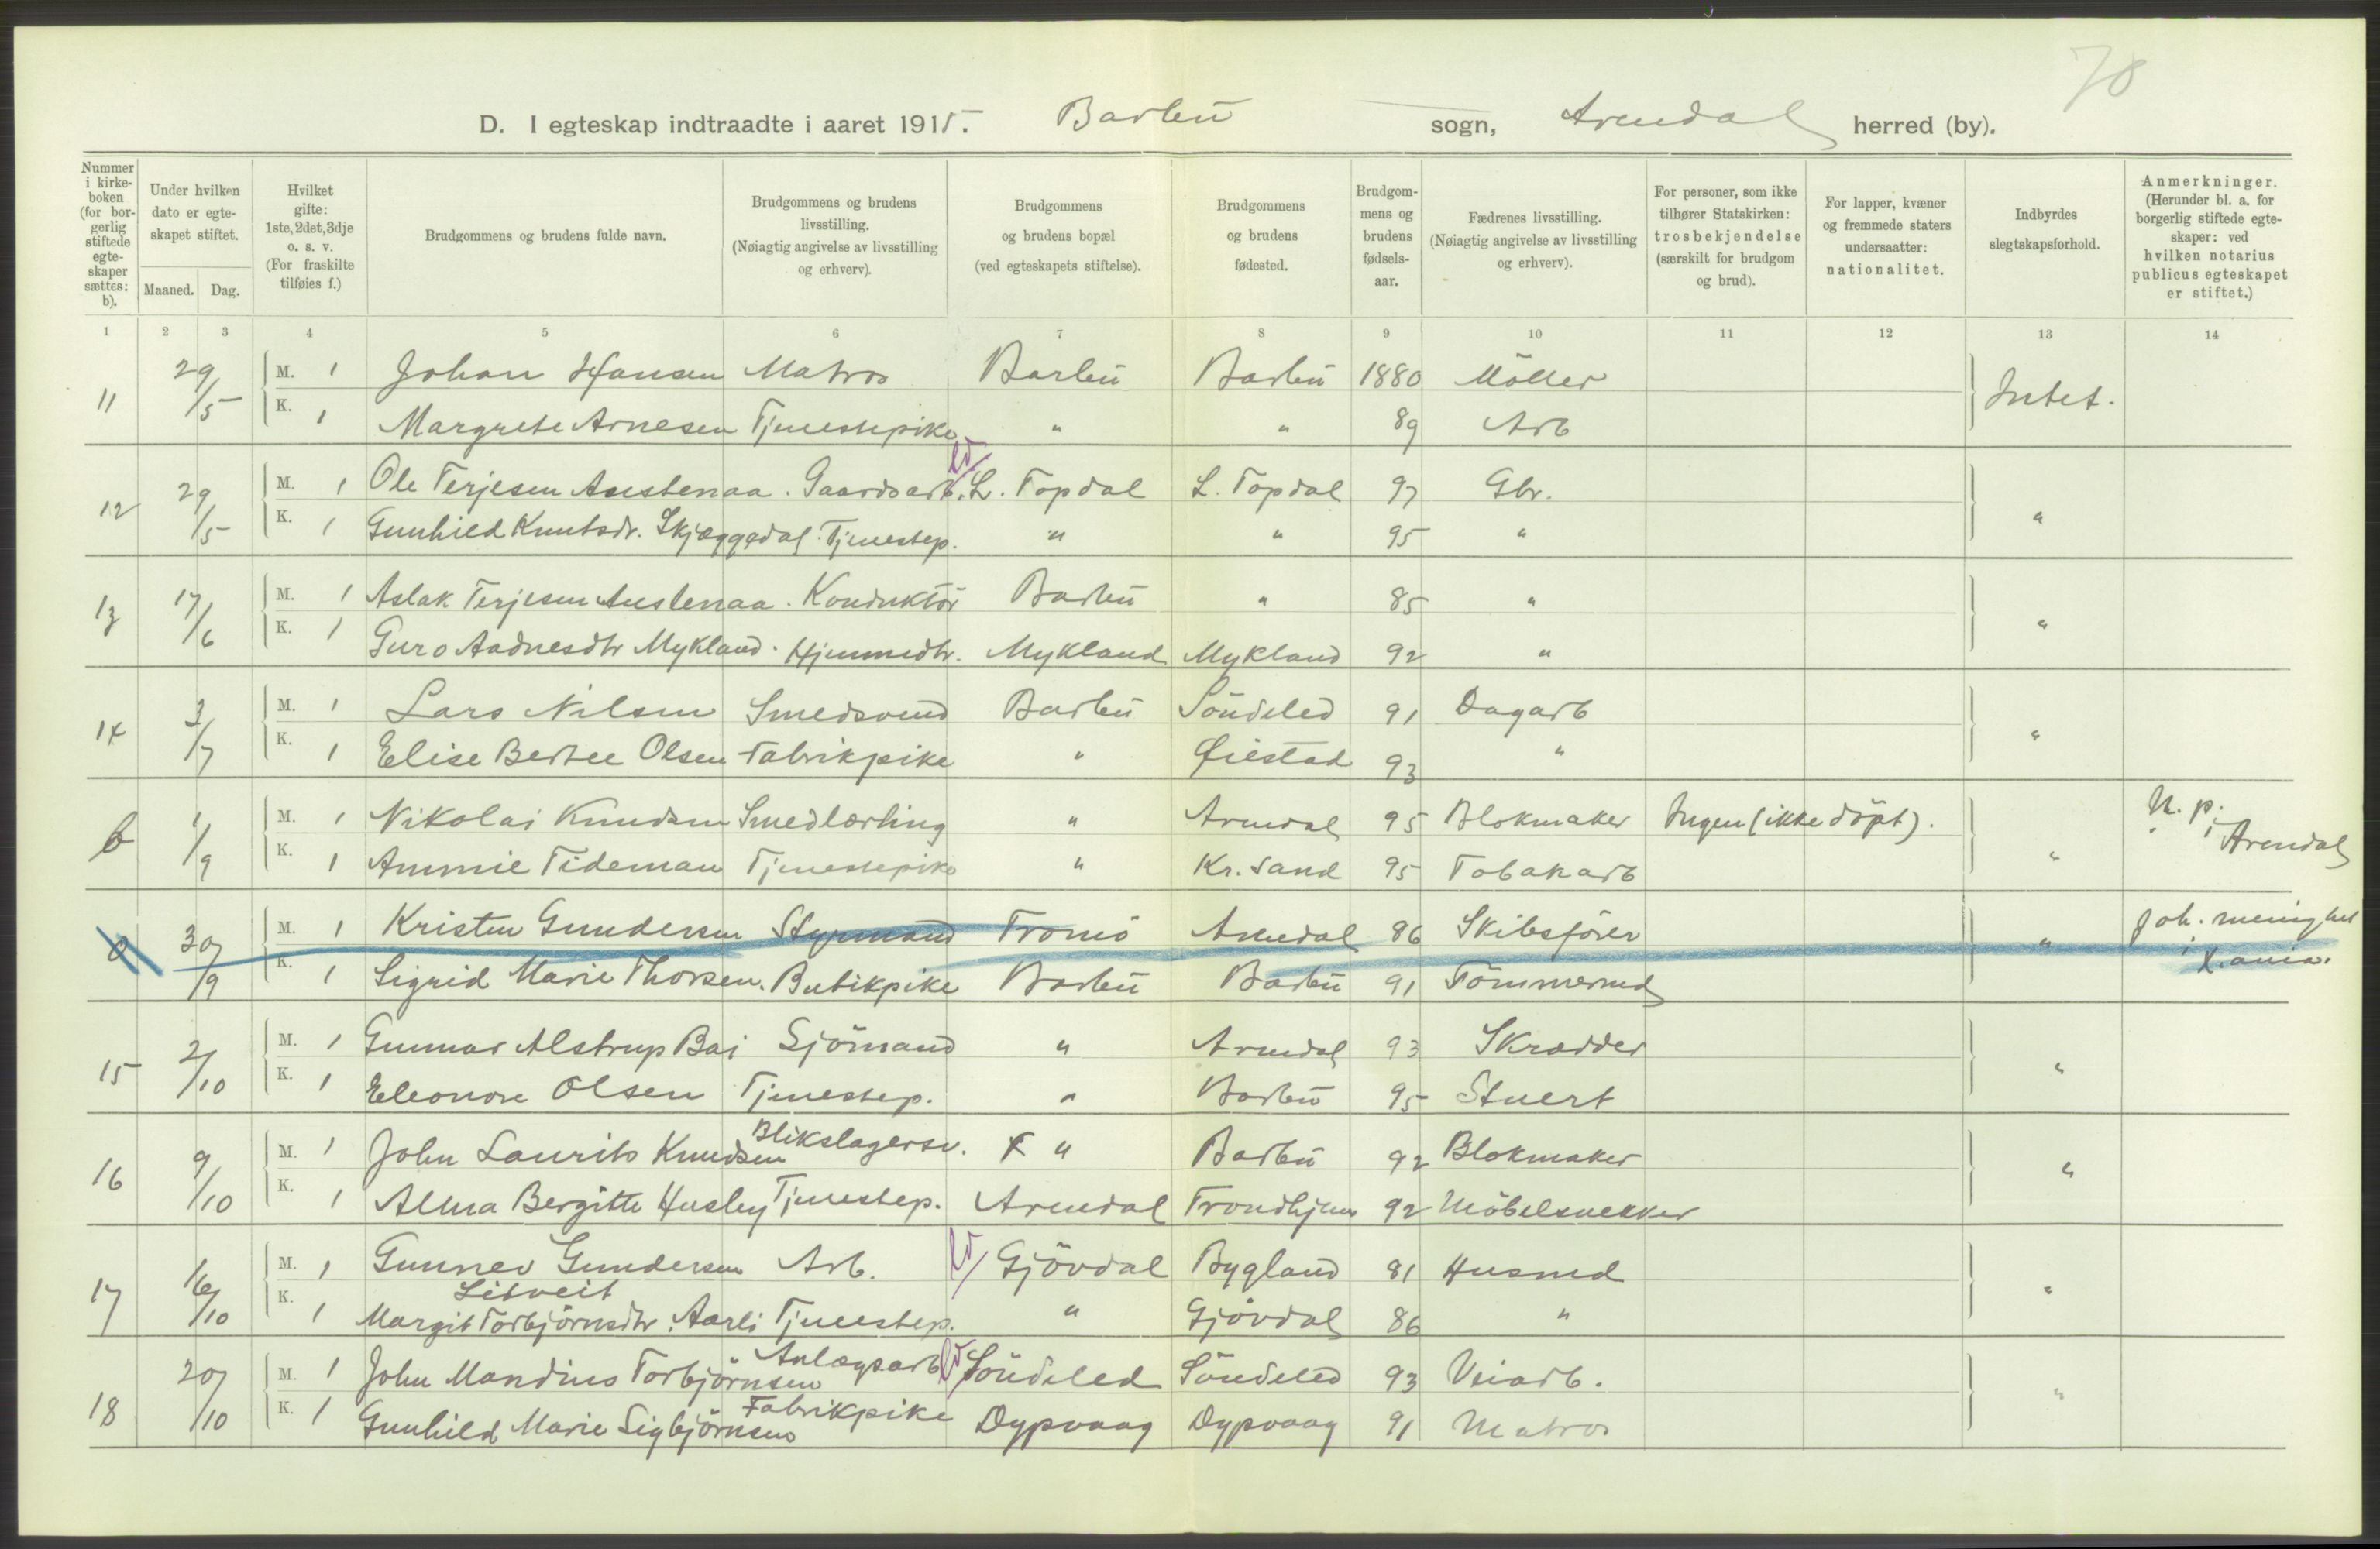 70
D. I egteskap indtraadte i aaret 1915. Barbu sogn, Arendal herred (by).
Nummer i kirke-boken (for bor-gerlig stiftede egte-skaper sættes: b).
Under hvilken dato er egte-skapet stiftet.
Maaned. Dag.
Hvilket gifte: 1ste, 2det, 3dje o. s. v. (For fraskilte tilføies f.)
Brudgommens og brudens fulde navn.
Brudgommens og brudens livsstilling. (Nøiagtig angivelse av livsstilling og erhverv).
Brudgommens og brudens bopæl (ved egteskapets stiftelse).
Brudgommens og brudens fødested.
Brudgom-mens og brudens fødsels-aar.
Fædrenes livsstilling. (Nøiagtig angivelse av livsstilling og erhverv).
For personer, som ikke tilhører Statskirken: trosbekjendelse (særskilt for brudgom og brud).
For lapper, kvæner og fremmede staters undersaatter: nationalitet.
Indbyrdes slegtskapsforhold.
Anmerkninger. (Herunder bl. a. for borgerlig stiftede egte-skaper: ved hvilken notarius publicus egteskapet er stiftet.)
1 2 3 4 5 6 7 8 9 10 11 12 13 14
11 29/5 M. 1 Johan Hansen Matros Barbu Barbu 1880 Möller Intet.
K. 1 Margrete Arnesen Tjenestepike " " 89 Arb
12 29/5 M. 1 Ole Terjesen Austenaa. Gaardsarb. L. Topdal L. Topdal 97 Gbr. "
K. 1 Gunhild Knutsdr. Skjæggedal. Tjenestep. " " 95 "
13 17/6 M. 1 Aslak Terjesen Austenaa. Konduktör Barbu " 85 " "
K. 1 Guro Aadnesdtr Mykland. Hjemmedtr. Mykland Mykland 92 "
14 3/7 M. 1 Lars Nilsen Smedsvend Barbu Söndeled 91 Dagarb "
K. 1 Elise Bertee Olsen Fabrikpike " Øiestad 93 "
b 1/9 M. 1 Nikolai Knudsen Smedlærling " Arendal 95 Blokmaker Ingen (ikke döpt). " N. p. Arendal
K. 1 Ammie Tideman Tjenestepike " Kr. sand 95 Tobakarb
0 30/9 M. 1 Kristen Gundersen Styrmand Tromö Arendal 86 Skibsförer " Joh. menighet X.ania.
K. 1 Sigrid Marie Thorsen. Butikpike Barbu Barbu 91 Tömmermd
15 2/10 M. 1 Gunnar Alstrup Bai Sjömand " Arendal 93 Skrædder "
K. 1 Eleonore Olsen Tjenestep. " Barbu 95 Stuert
16 9/10 M. 1 John Laurits Knudsen Blikslagersv. " Barbu 92 Blokmaker "
K. 1 Alma Bergitte Husby Tjenestep. Arendal Trondhjem 92 Möbelsnekker
17 16/10 M. 1 Gunner Gundersen Arb. Gjövdal Bygland 81 Husmd "
Litveit
K. 1 Margit Torbjörnsdtr. Aarli Tjenestep. " Gjövdal 86 "
18 20/10 M. 1 John Mandius Torbjörnsen Anlægsarb Söndeled Söndeled 93 Veiarb. "
K. 1 Gunhild Marie Sigbjörnsen Fabrikpike Dypvaag Dypvaag 91 Matros